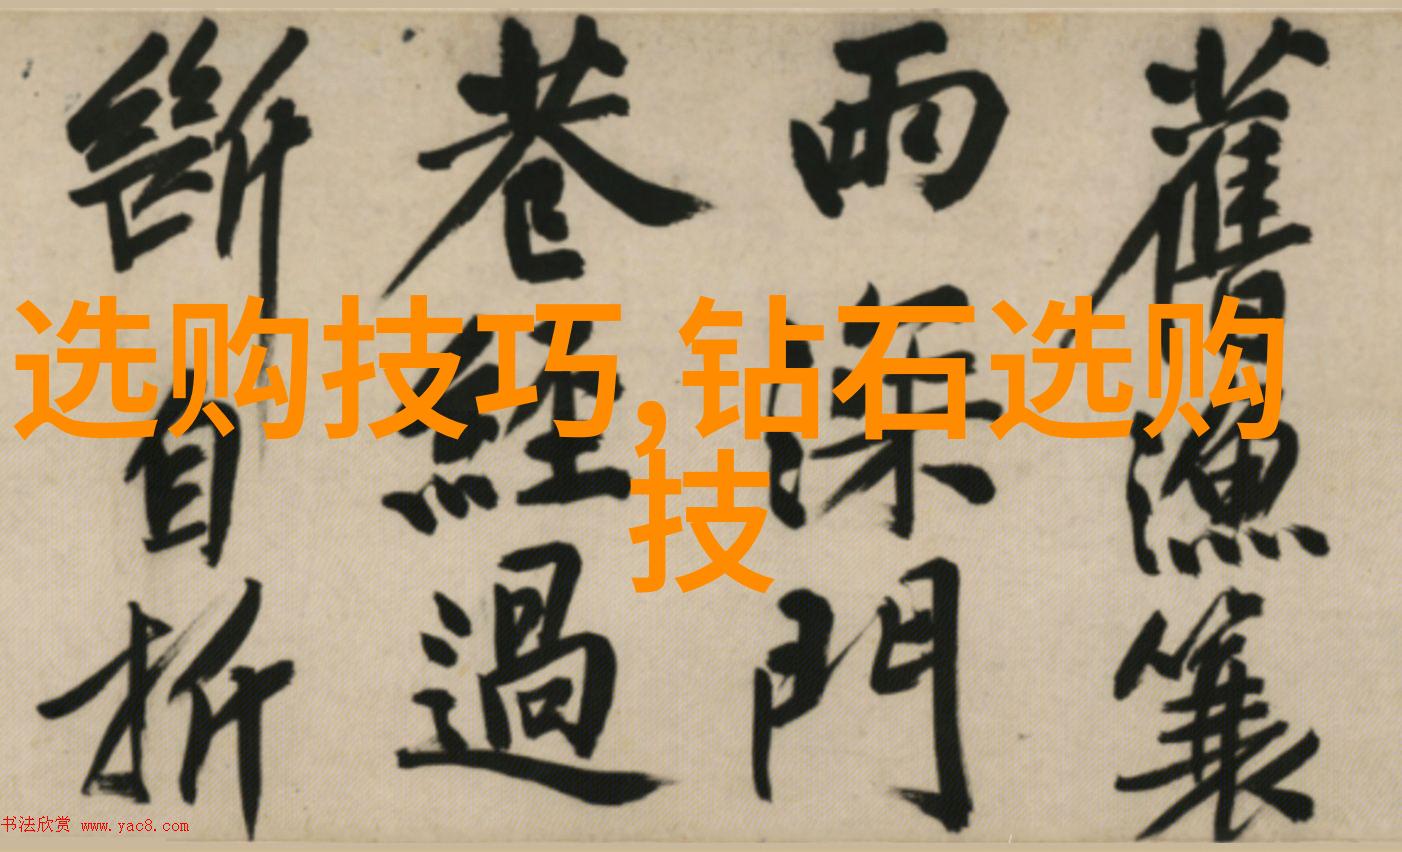 舊漁蓑
雨深門
巷經過
斷自折
选购技巧,钻石选购
技
书法欣赏 www.yac8.com